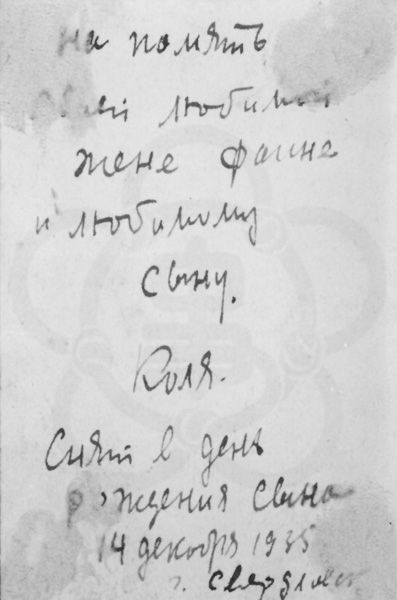 на помять
своей любимой
жене фаине
и любимому
сыну.
Коля.
Снят в день
рождения сына
14 декобря 1935
г. Свердловск